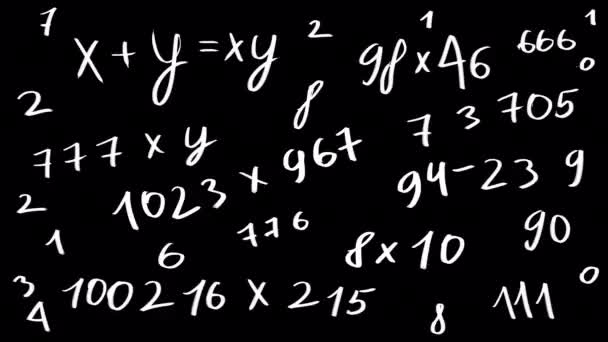 7 x + y = xy 2 98 x 46 1 666 1
0
2 8 7 3 705
777 x y 1023 x 967 94 - 23 9
2
1 6 776 8 x 10 90
3 100216 x 215 111 0
4 8